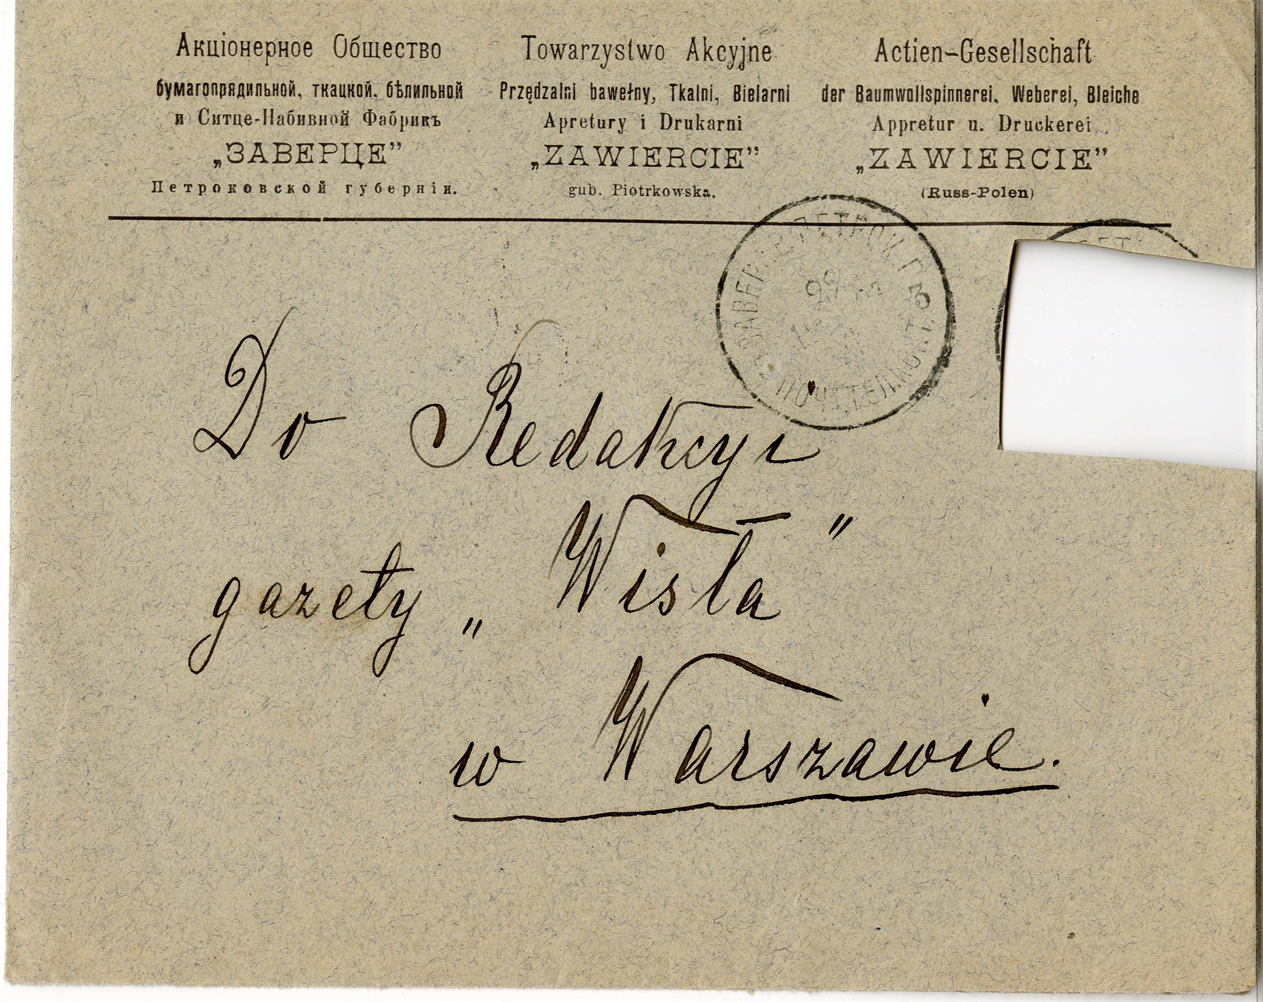 Акціонерное Общество
бумагопрядильной, ткацкой, бѣлильной
и Ситце-Набивной Фабрикъ
„ЗАВЕРЦЕ”
Петроковской губерніи.
Towarzystwo Akcyjne
Przędzalni bawełny, Tkalni, Bielarni
Apretury i Drukarni
„ZAWIERCIE”
gub. Piotrkowska.
Actien-Gesellschaft
der Baumwollspinnerei, Weberei, Bleiche
Appretur u. Druckerei
„ZAWIERCIE”
(Russ-Polen)
ПЕТРОК. Г.
3
Do Redakcyi
gazety „Wisła”
w Warszawie.